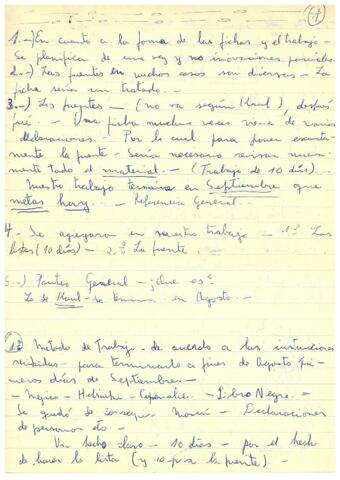 1.-) En cuanto a la forma de las fichas y el trabajo -
Se planifica de una vez y no innovaciones parciales
2.-) Las fuentes en muchos casos son diversas - La
ficha sería un tratado. -
3.-) Los fuentes - (no va según Raul), después
 - Una ficha muchas veces viene de varias
declaraciones. - Por lo cual para poner exacta-
mente la fuente - Sería necesario revisar nueva-
mente todo el material. - (Trabajo de 10 días). -
Nuestro trabajo termina en Septiembre que
 - Referencia General. -
4.- Se agregaron en nuestro trabajo - 1º Las
listas (10 días) - 2º La fuente. -
5.-) Partes General - ¿Que es?
Lo de Raul - se termina en Agosto. -
Metodo de Trabajo - de acuerdo a las instrucciones
recibidas - para terminarlo a fines de Agosto pri-
meros días de Septiembre. -
- Negrea - Helsinki - - Libro Negro. -
Se quedó de conseguir - Declaraciones
de personas etc. -
Un hecho claro - 10 días - por el hech
de hacer la lista (y 10 por la fuente). -